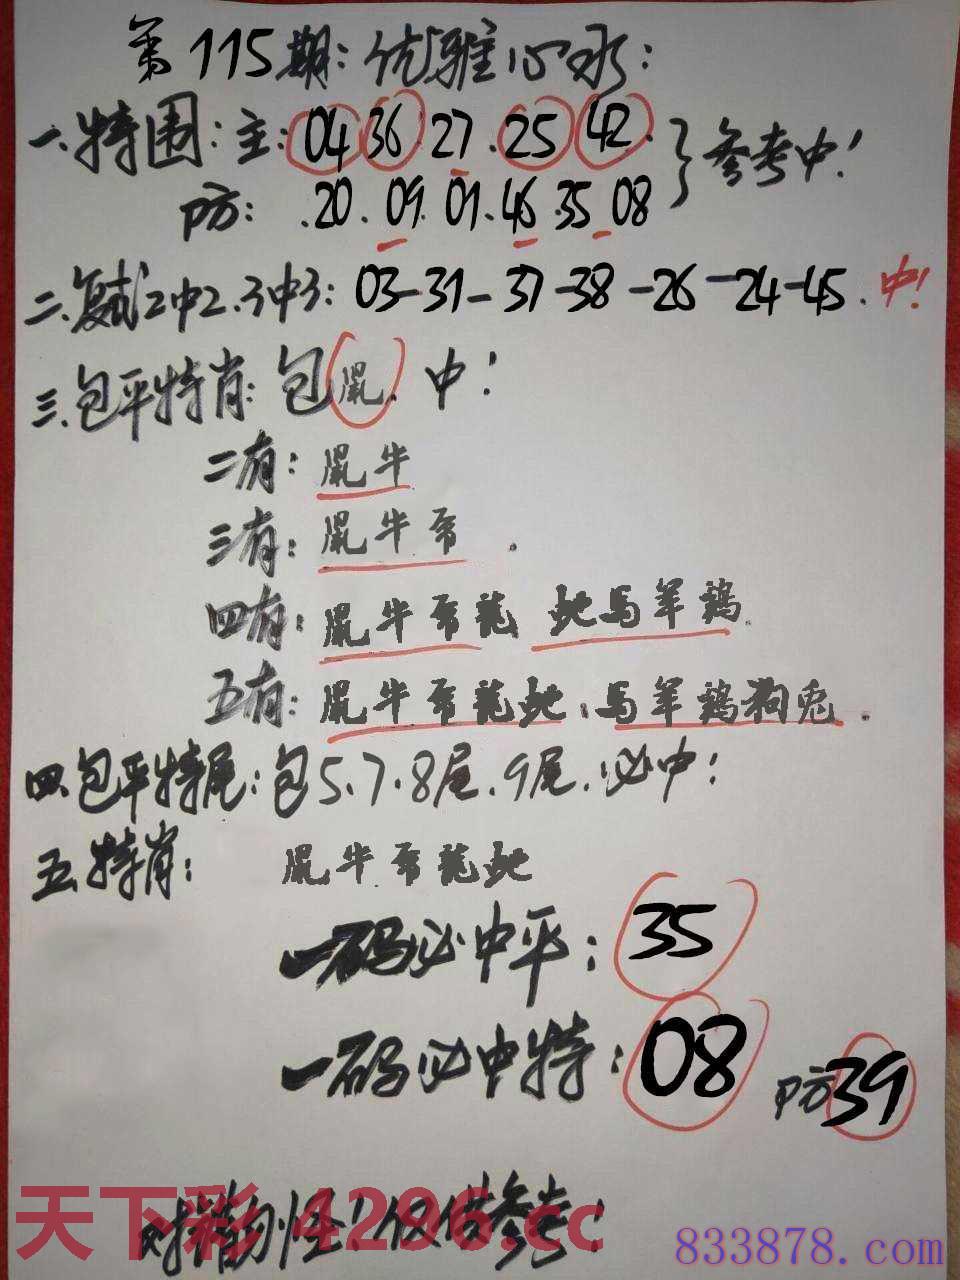 第115期：优雅心水：
一.特围：主：04 36 27.25 42.}参考中！
防：.20.09.01.46.35 08
二.复式2中2.3中3：03-31-37-38-26-24-45.中！
三.包平特肖：包鼠.中！
二有：鼠牛
三有：鼠牛帝.
四有：鼠牛帝龍 虵马羊鷄.
五有：鼠牛帝龍虵.马羊鷄狗兎.
四.包平特尾：包5.7.8尾.9尾.必中！
五.特肖：鼠牛.帝龍虵
一码必中平：35
一码必中特：08 防39
仅供参考！
天下彩 4296.cc
833878.com